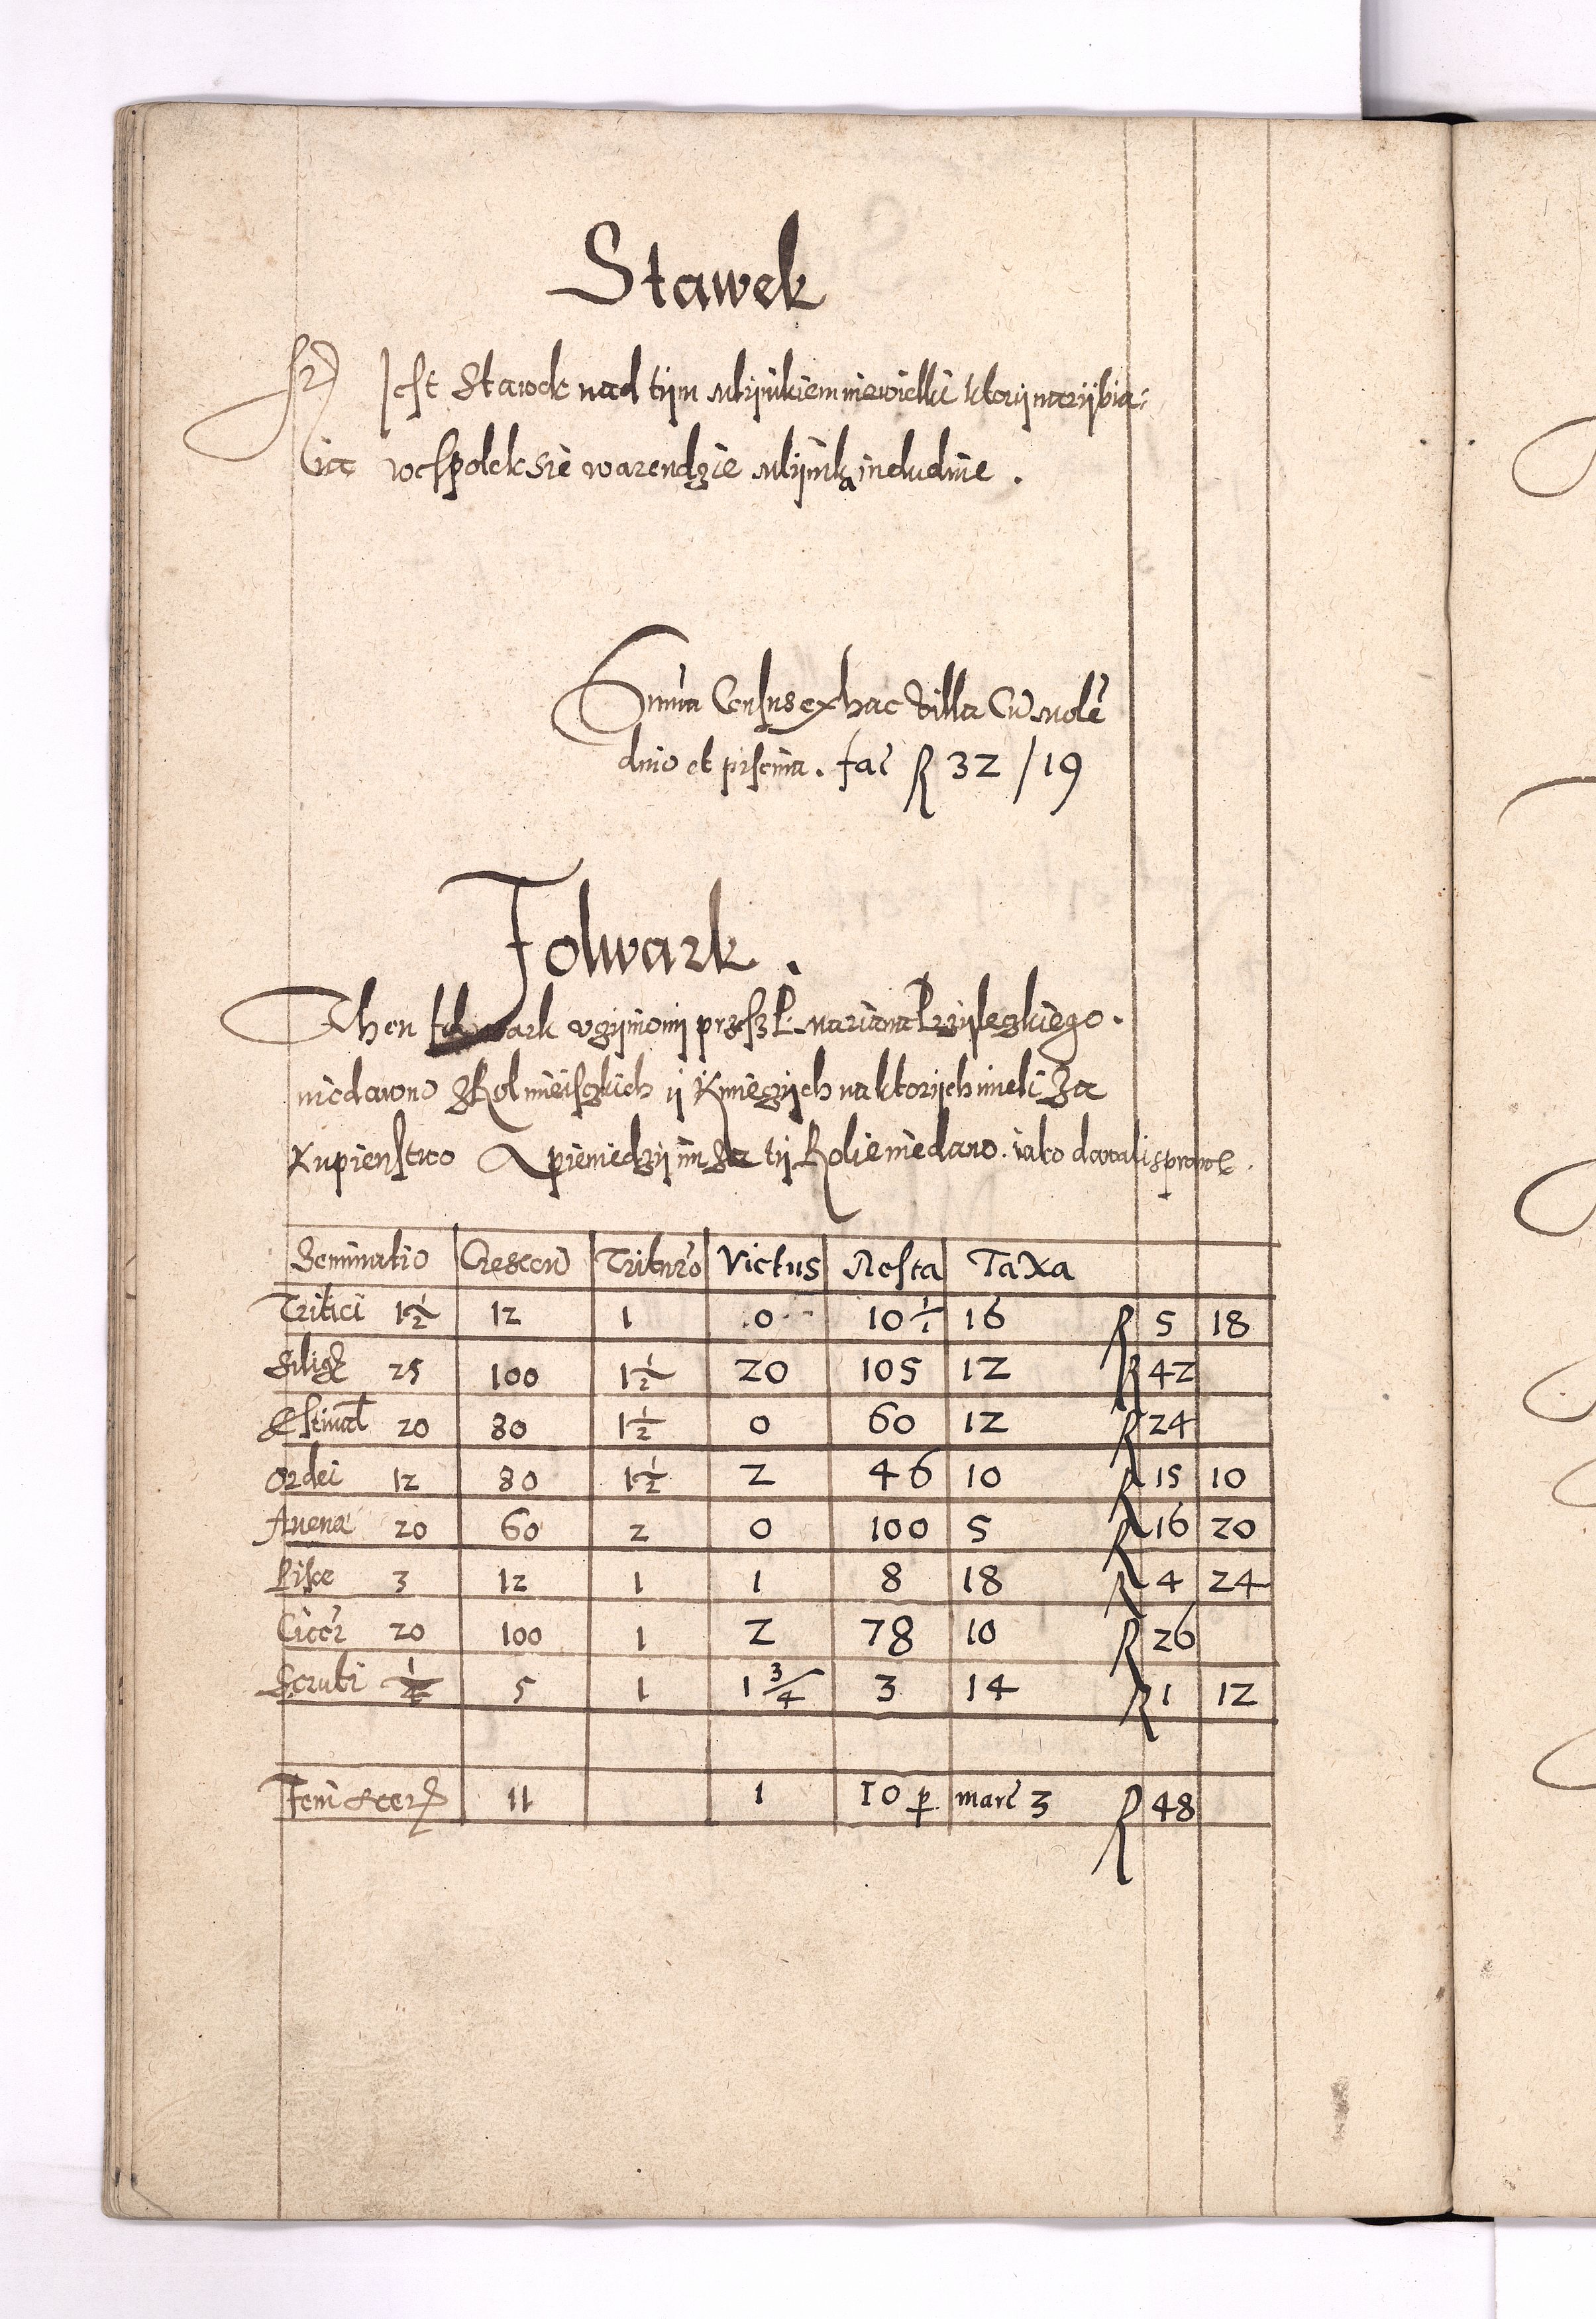 Stawek
Jest Stawek nad tÿm Mlÿnkiem niewielki ktorÿ narÿbia:
ia wespolek sie w arendzie Mlÿnka includuie.
Sum̃a Census ex hac Villa Cũ Molẽ
dino et piscina. fac̃ R 32 / 19
Folwark.
Then folwark vczÿnionÿ przesz P. Mariana Przÿleczkiego.
niedawno z Rol mieisczkich ÿ Kmieczÿch na ktorÿch mieli Za
Kupienstwo A pieniedzÿ im za tÿ Rolie niedano. iako dawali sprawe.
Seminatio Crescen̄ Triturõ Victus Resta Taxa
Tritici 1½ 12 1 0 10 1/1 16 R 5 18
Silig 25 100 1½ 20 105 12 R 42
Estival 20 80 1½ 0 60 12 R 24
Ordei 12 80 1½ 2 46 10 R 15 10
Auena 20 60 2 0 100 5 R 16 20
Pise 3 12 1 1 8 18 R 4 24
Cicer̃ 20 100 1 2 78 10 R 26
Scruti ¼ 5 1 1¾ 3 14 R 1 12
Feni 11 1 10 p marc̃ 3 R 48